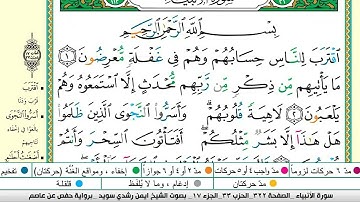 بِسْمِ ٱللَّهِ ٱلرَّحْمَٰنِ ٱلرَّحِيمِ
ٱقْتَرَبَ لِلنَّاسِ حِسَابُهُمْ وَهُمْ فِى غَفْلَةٍ مُّعْرِضُونَ ١
مَا يَأْتِيهِم مِّن ذِكْرٍ مِّن رَّبِّهِم مُّحْدَثٍ إِلَّا ٱسْتَمَعُوهُ وَهُمْ
يَلْعَبُونَ ٢ لَاهِيَةً قُلُوبُهُمْ ۗ وَأَسَرُّوا۟ ٱلنَّجْوَى ٱلَّذِينَ ظَلَمُوا۟
هَلْ هَٰذَآ إِلَّا بَشَرٌ مِّثْلُكُمْ ۖ أَفَتَأْتُونَ ٱلسِّحْرَ وَأَنتُمْ
مد ٦ حركات لزوماً مد واجب ٤ أو ٥ حركات مد ٢ أو ٤ أو ٦ جوازاً إخفاء ، ومواقع الغُنَّة (حركتان) تفخيم
مد حركتان إدغام ، وما لا يُلفَظ قلقلة
سورة الأنبياء. الصفحة ٣٢٢. الحزب ٣٣. الجزء ١٧. بصوت الشيخ ايمن رشدي سويد. برواية حفص عن عاصم